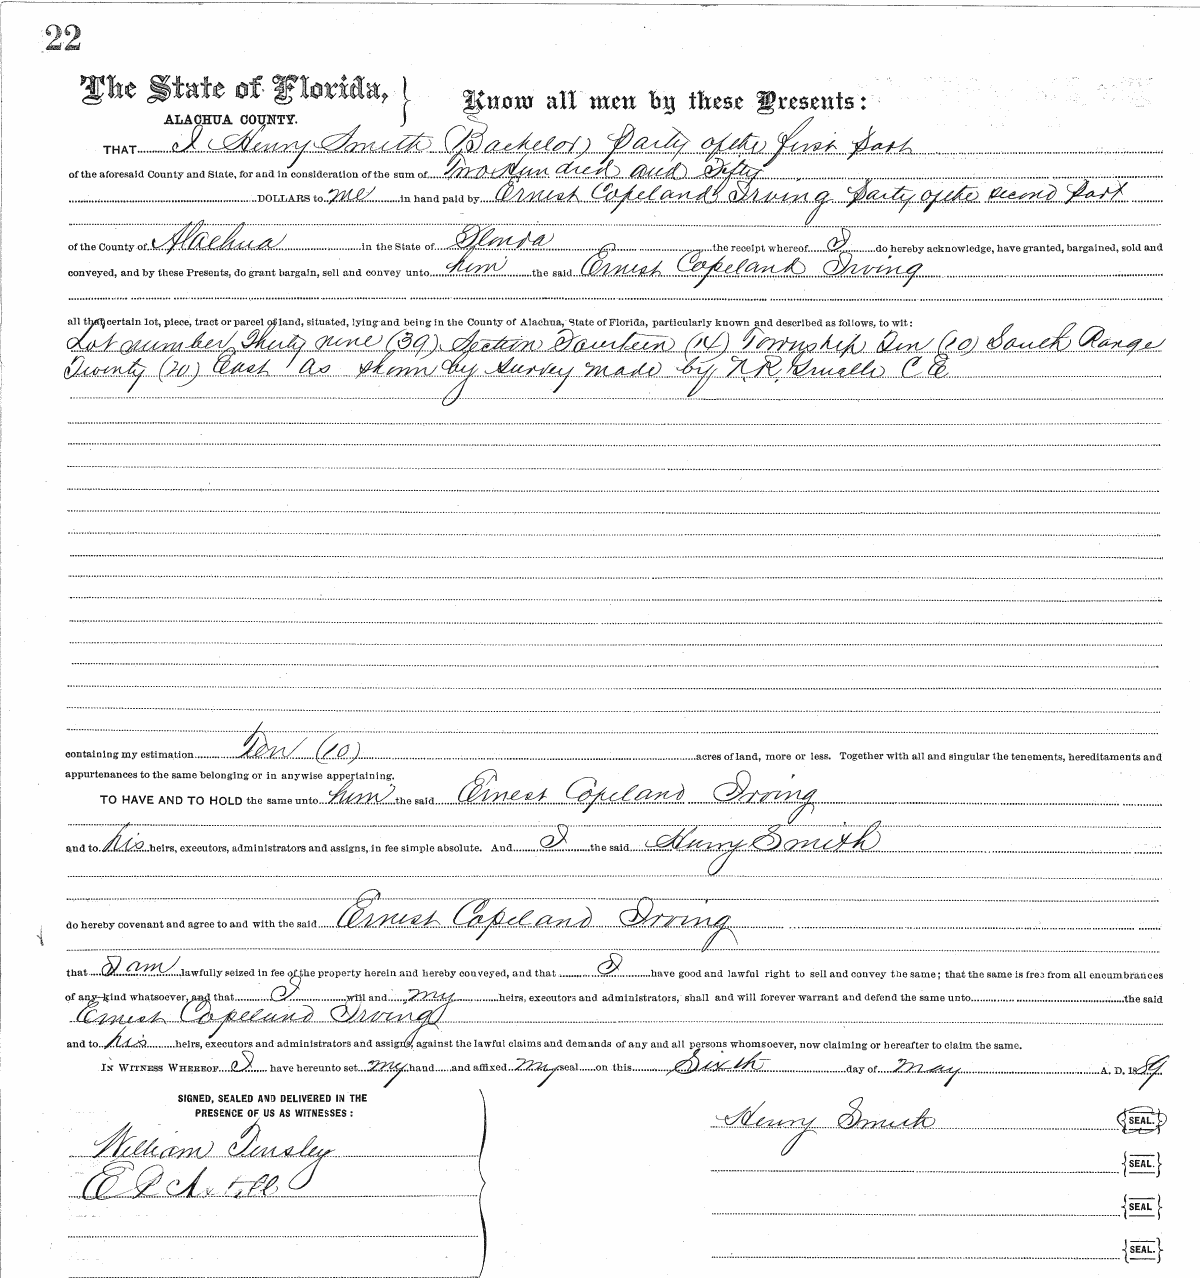 22
The State of Florida,
ALACHUA COUNTY.
Know all men by these Presents:
THAT I Henry Smith (Bachelor) Party of the first Part
of the aforesaid County and State, for and in consideration of the sum of Two Hundred and Fifty
DOLLARS to me in hand paid by Ernest Copeland Irving Party of the second Part
of the County of Alachua in the State of Florida the receipt whereof I do hereby acknowledge, have granted, bargained, sold and
conveyed, and by these Presents, do grant bargain, sell and convey unto him the said Ernest Copeland Irving
all that certain lot, piece, tract or parcel of land, situated, lying and being in the County of Alachua, State of Florida, particularly known and described as follows, to wit:
Lot number Thirty nine (39) Section Fourteen (14) Township Ten (10) South Range
Twenty (20) East As shown by Survey made by R. C E
containing my estimation Ten (10) acres of land, more or less. Together with all and singular the tenements, hereditaments and
appurtenances to the same belonging or in anywise appertaining.
TO HAVE AND TO HOLD the same unto him the said Ernest Copeland Irving
and to his heirs, executors, administrators and assigns, in fee simple absolute. And I the said Henry Smith
do hereby covenant and agree to and with the said Ernest Copeland Irving
that I am lawfully seized in fee of the property herein and hereby conveyed, and that I have good and lawful right to sell and convey the same; that the same is free from all encumbrances
of any kind whatsoever, and that I will and my heirs, executors and administrators, shall and will forever warrant and defend the same unto the said
Ernest Copeland Irving
and to his heirs, executors and administrators and assigns, against the lawful claims and demands of any and all persons whomsoever, now claiming or hereafter to claim the same.
IN WITNESS WHEREOF I have hereunto set my hand and affixed my seal on this Sixth day of May A, D. 1889
SIGNED, SEALED AND DELIVERED IN THE
PRESENCE OF US AS WITNESSES:
William Tinsley
E P
Henry Smith SEAL.
SEAL.
SEAL.
SEAL.